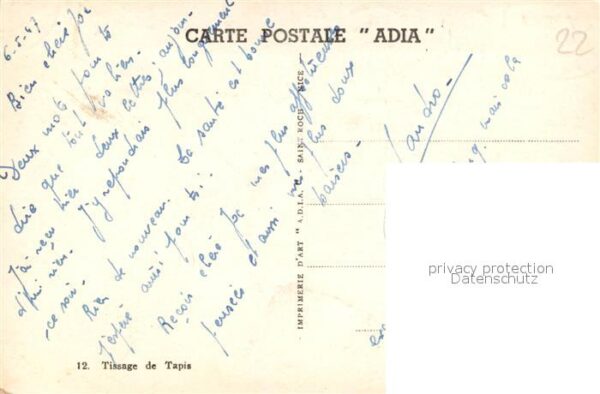 CARTE POSTALE "ADIA"
22
6-5-47
Bien chère Jo
Deux mots pour te
dire que tout va bien.
J'ai reçu hier deux lettres, aujour-
d'hui rien. J'y répondrai plus longuement
ce soir.
Rien de nouveau. La santé est bonne
j'espère aussi pour toi.
Reçois chère Jo mes plus affectueuses
pensées et aussi mes plus doux
baisers.
IMPRIMERIE D'ART "A.D.I.A." - SAINT ROCH - NICE
privacy protection
Datenschutz
12. Tissage de Tapis